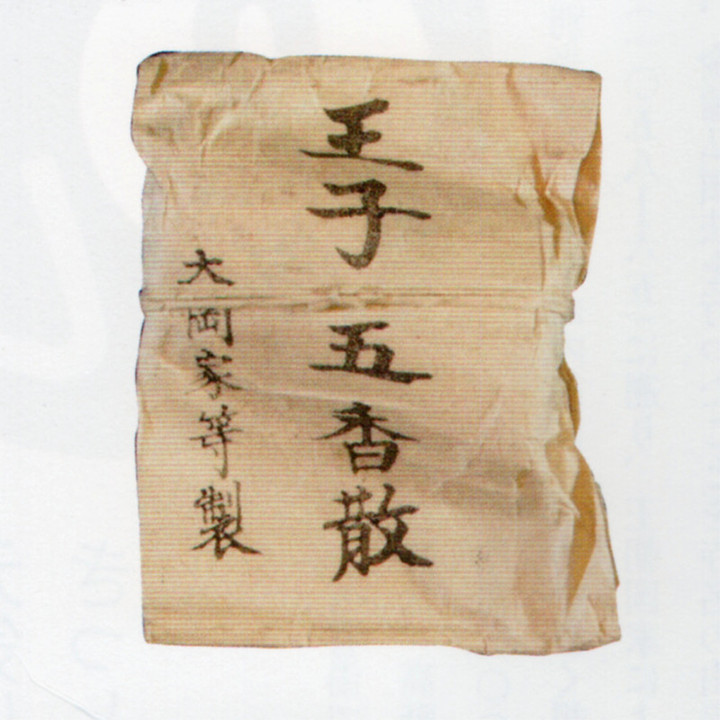 王子五香散
大岡家等製